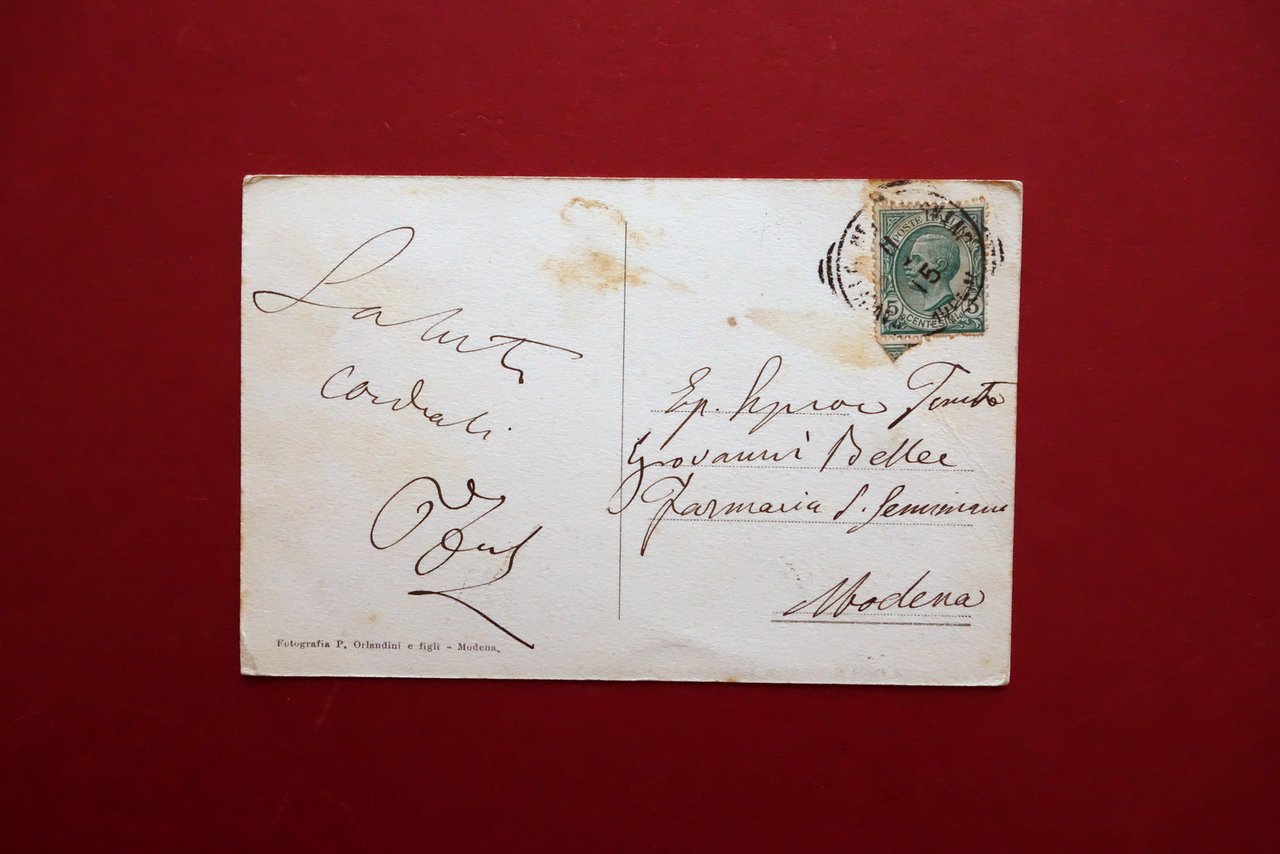 Saluti
cordiali
Fotografia P. Orlandini e figli - Modena.
POSTE ITALIANE
15
5 CENTESIMI 5
Eg. Signor
Giovanni Bellei
Farmacia S. Geminiano
Modena